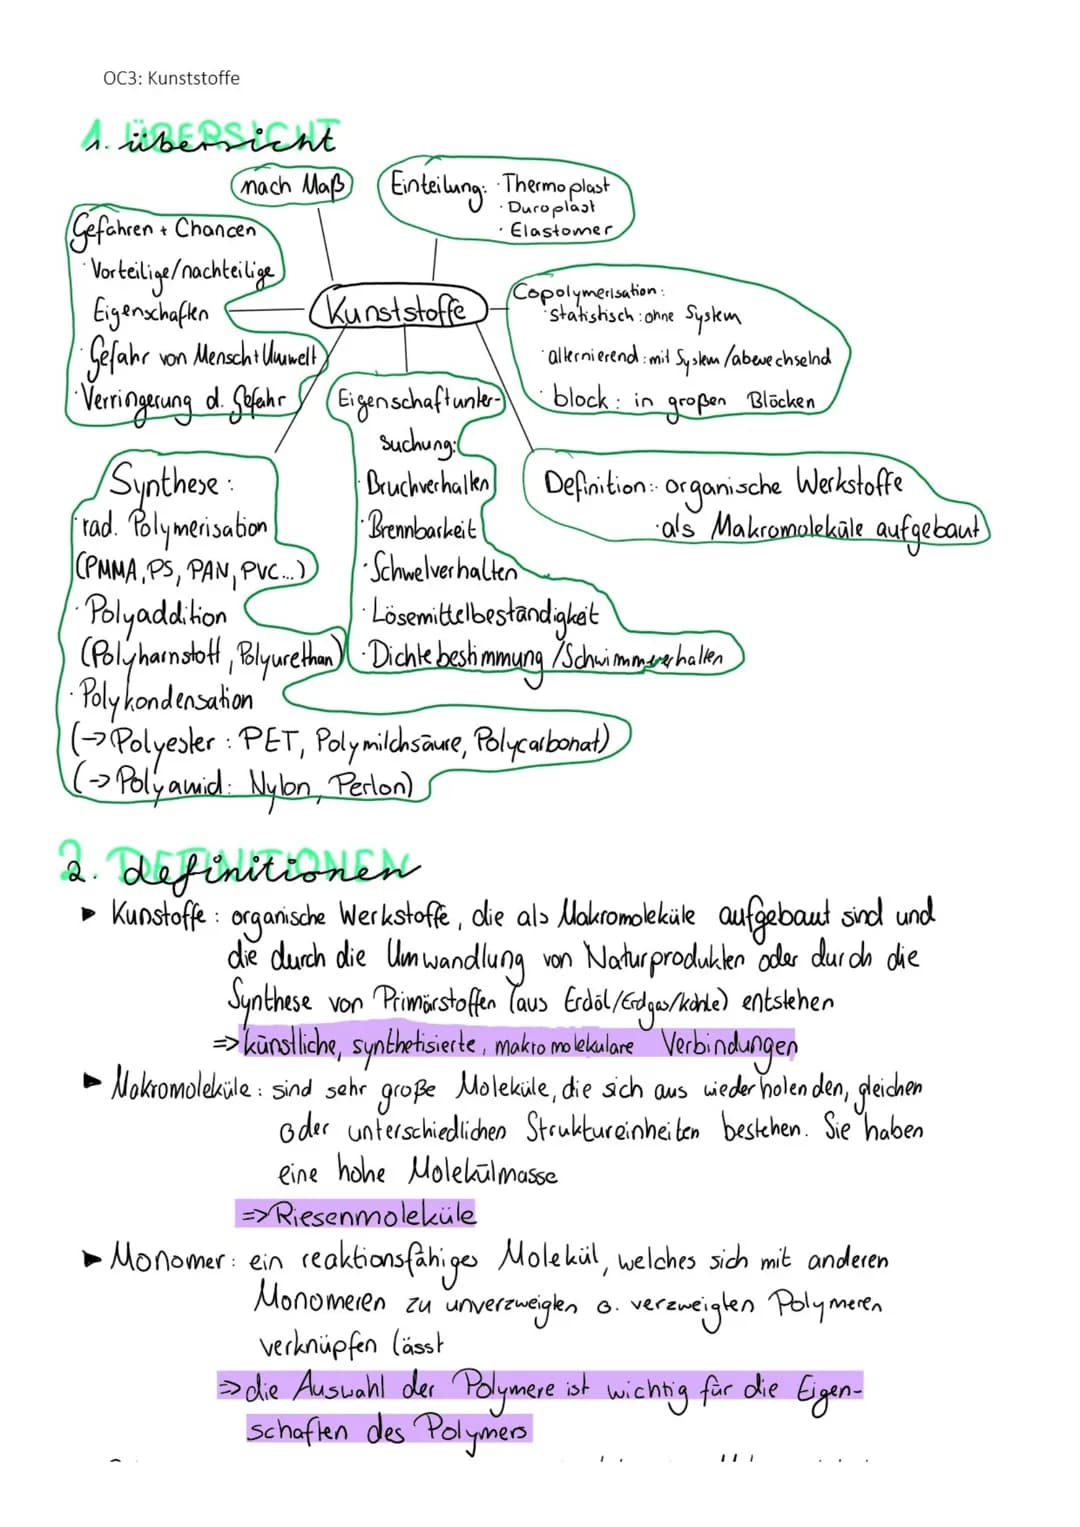 OC3: Kunststoffe
1. übersicht
nach Maß
Einteilung: · Thermoplast
· Duroplast
· Elastomer
Gefahren + Chancen
· Vorteilige/nachteilige
Eigenschaften
· Gefahr von Mensch + Umwelt
· Verringerung d. Gefahr
Kunststoffe
Copolymerisation:
· statistisch: ohne System
· alternierend: mit System/abwechselnd
· block: in großen Blöcken
Eigenschaftunter-
suchung:
· Bruchverhalten
· Brennbarkeit
· Schwelverhalten
· Lösemittelbeständigkeit
· Dichtebestimmung/Schwimmverhalten
Definition: · organische Werkstoffe
· als Makromoleküle aufgebaut
Synthese:
· rad. Polymerisation
(PMMA, PS, PAN, PVC...)
· Polyaddition
(Polyharnstoff, Polyurethan)
· Polykondensation
(→ Polyester: PET, Polymilchsäure, Polycarbonat)
(→ Polyamid: Nylon, Perlon)
2. definitionen
► Kunstoffe: organische Werkstoffe, die als Makromoleküle aufgebaut sind und
die durch die Umwandlung von Naturprodukten oder durch die
Synthese von Primärstoffen (aus Erdöl/Erdgas/Kohle) entstehen
=> künstliche, synthetisierte, makromolekulare Verbindungen
► Makromoleküle: sind sehr große Moleküle, die sich aus wiederholenden, gleichen
oder unterschiedlichen Struktureinheiten bestehen. Sie haben
eine hohe Molekülmasse
=> Riesenmoleküle
► Monomer: ein reaktionsfähiges Molekül, welches sich mit anderen
Monomeren zu unverzweigten o. verzweigten Polymeren
verknüpfen lässt
=> die Auswahl der Polymere ist wichtig für die Eigen-
schaften des Polymers